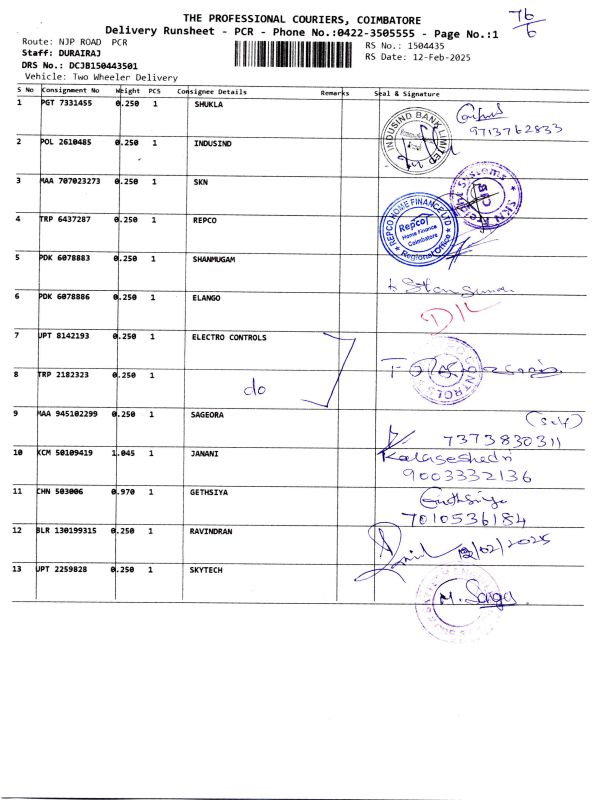 THE PROFESSIONAL COURIERS, COIMBATORE
76/6
Delivery Runsheet - PCR - Phone No.:0422-3505555 - Page No.:1
Route: NJP ROAD PCR
RS No.: 1504435
Staff: DURAIRAJ
RS Date: 12-Feb-2025
DRS No.: DCJB150443501
Vehicle: Two Wheeler Delivery
S No Consignment No Weight PCS Consignee Details Remarks Seal & Signature
1 PGT 7331455 0.250 1 SHUKLA
9713762833
2 POL 2610485 0.250 1 INDUSIND
INDUSIND BANK LIMITED
3 MAA 707023273 0.250 1 SKN
SKN
4 TRP 6437287 0.250 1 REPCO
REPCO HOME FINANCE LTD
Repco
Home Finance
Coimbatore
Regional Office
5 PDK 6078883 0.250 1 SHANMUGAM
6 PDK 6078886 0.250 1 ELANGO
D/L
7 UPT 8142193 0.250 1 ELECTRO CONTROLS
8 TRP 2182323 0.250 1
do
9 MAA 945102299 0.250 1 SAGEORA
(Self)
7373830311
10 KCM 50109419 1.045 1 JANANI
9003332136
11 CHN 503006 0.970 1 GETHSIYA
7010536184
12 BLR 130199315 0.250 1 RAVINDRAN
12/02/2025
13 UPT 2259828 0.250 1 SKYTECH